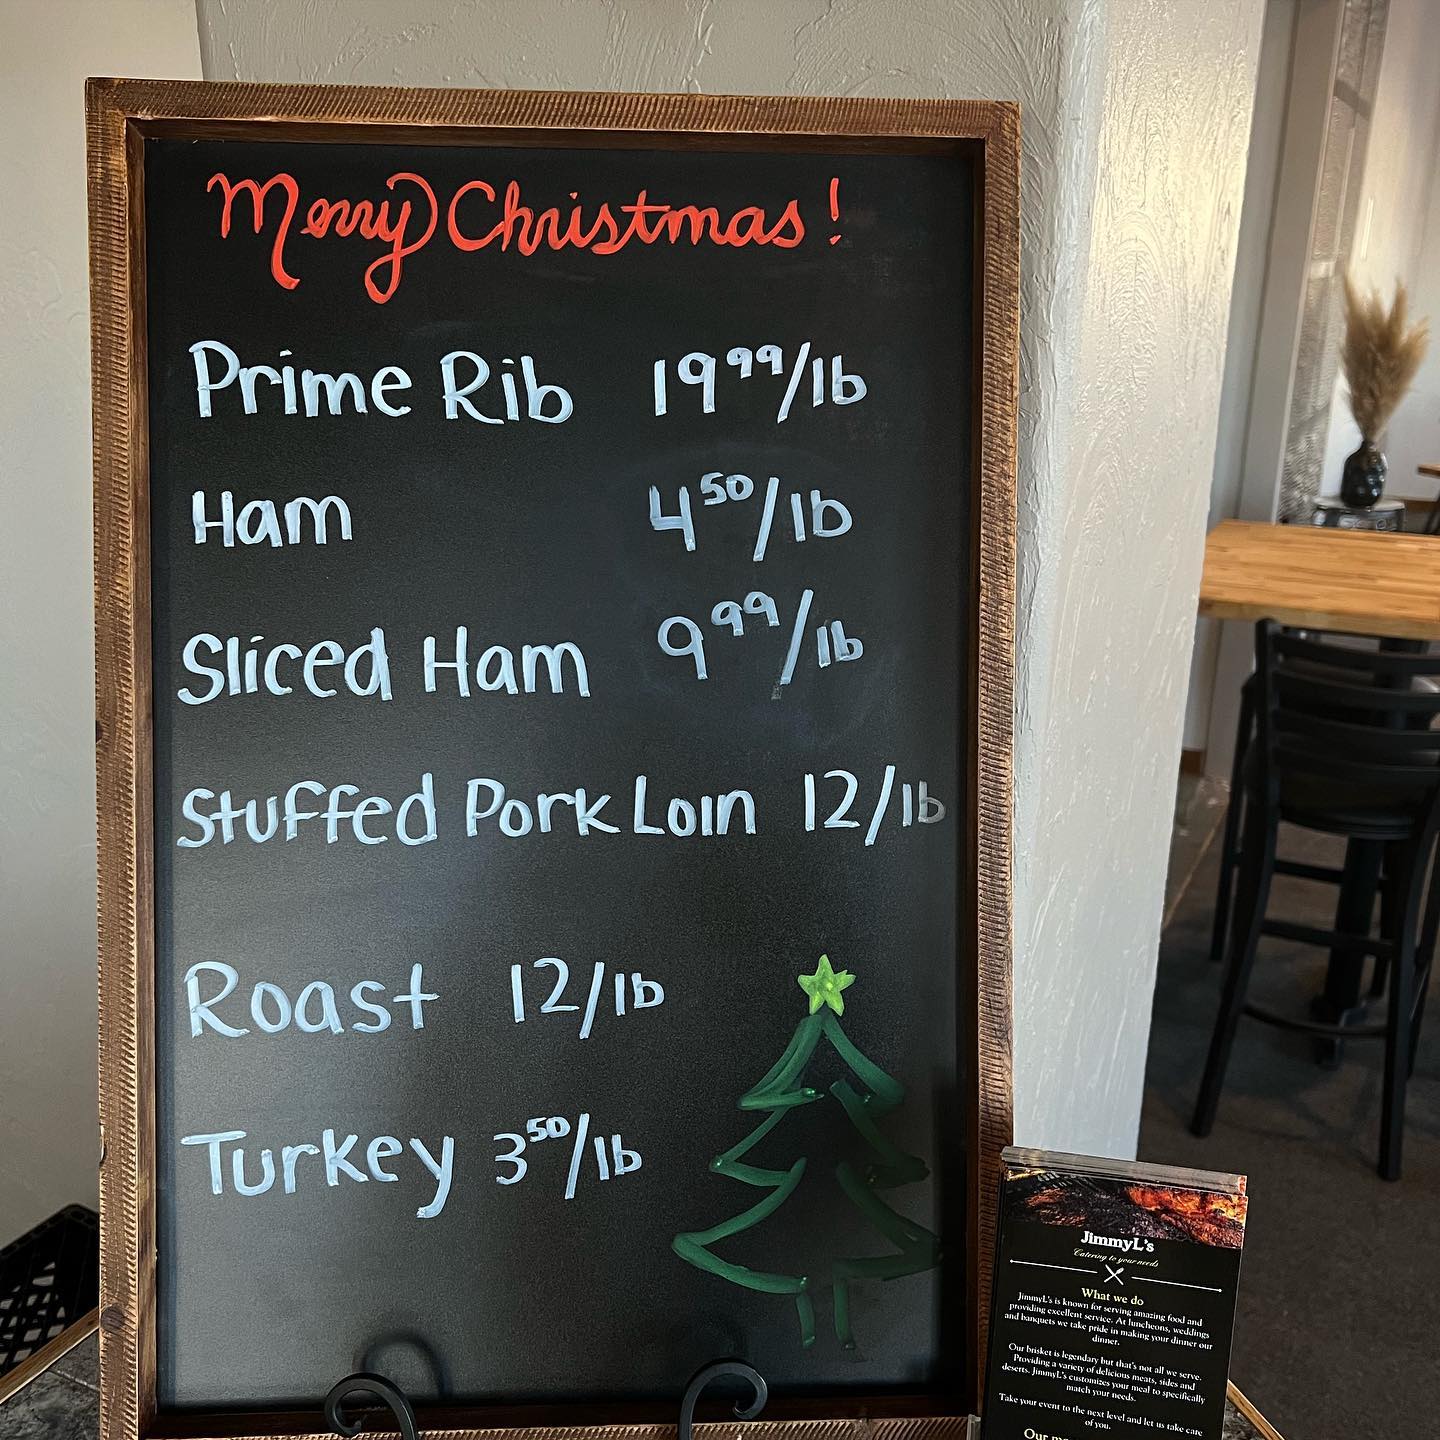 Merry Christmas!
Prime Rib 19.99/lb
Ham 4.50/lb
Sliced Ham 9.99/lb
Stuffed Pork Loin 12/lb
Roast 12/lb
Turkey 3.50/lb
JimmyL's
Catering to your needs
What we do
JimmyL's is known for serving amazing food and
providing excellent service. At luncheons, weddings
and banquets we take pride in making your dinner our
dinner.
Our brisket is legendary but that's not all we serve.
Providing a variety of delicious meats, sides and
deserts. JimmyL's customizes your meal to specifically
match your needs.
Take your event to the next level and let us take care
of you.
Our